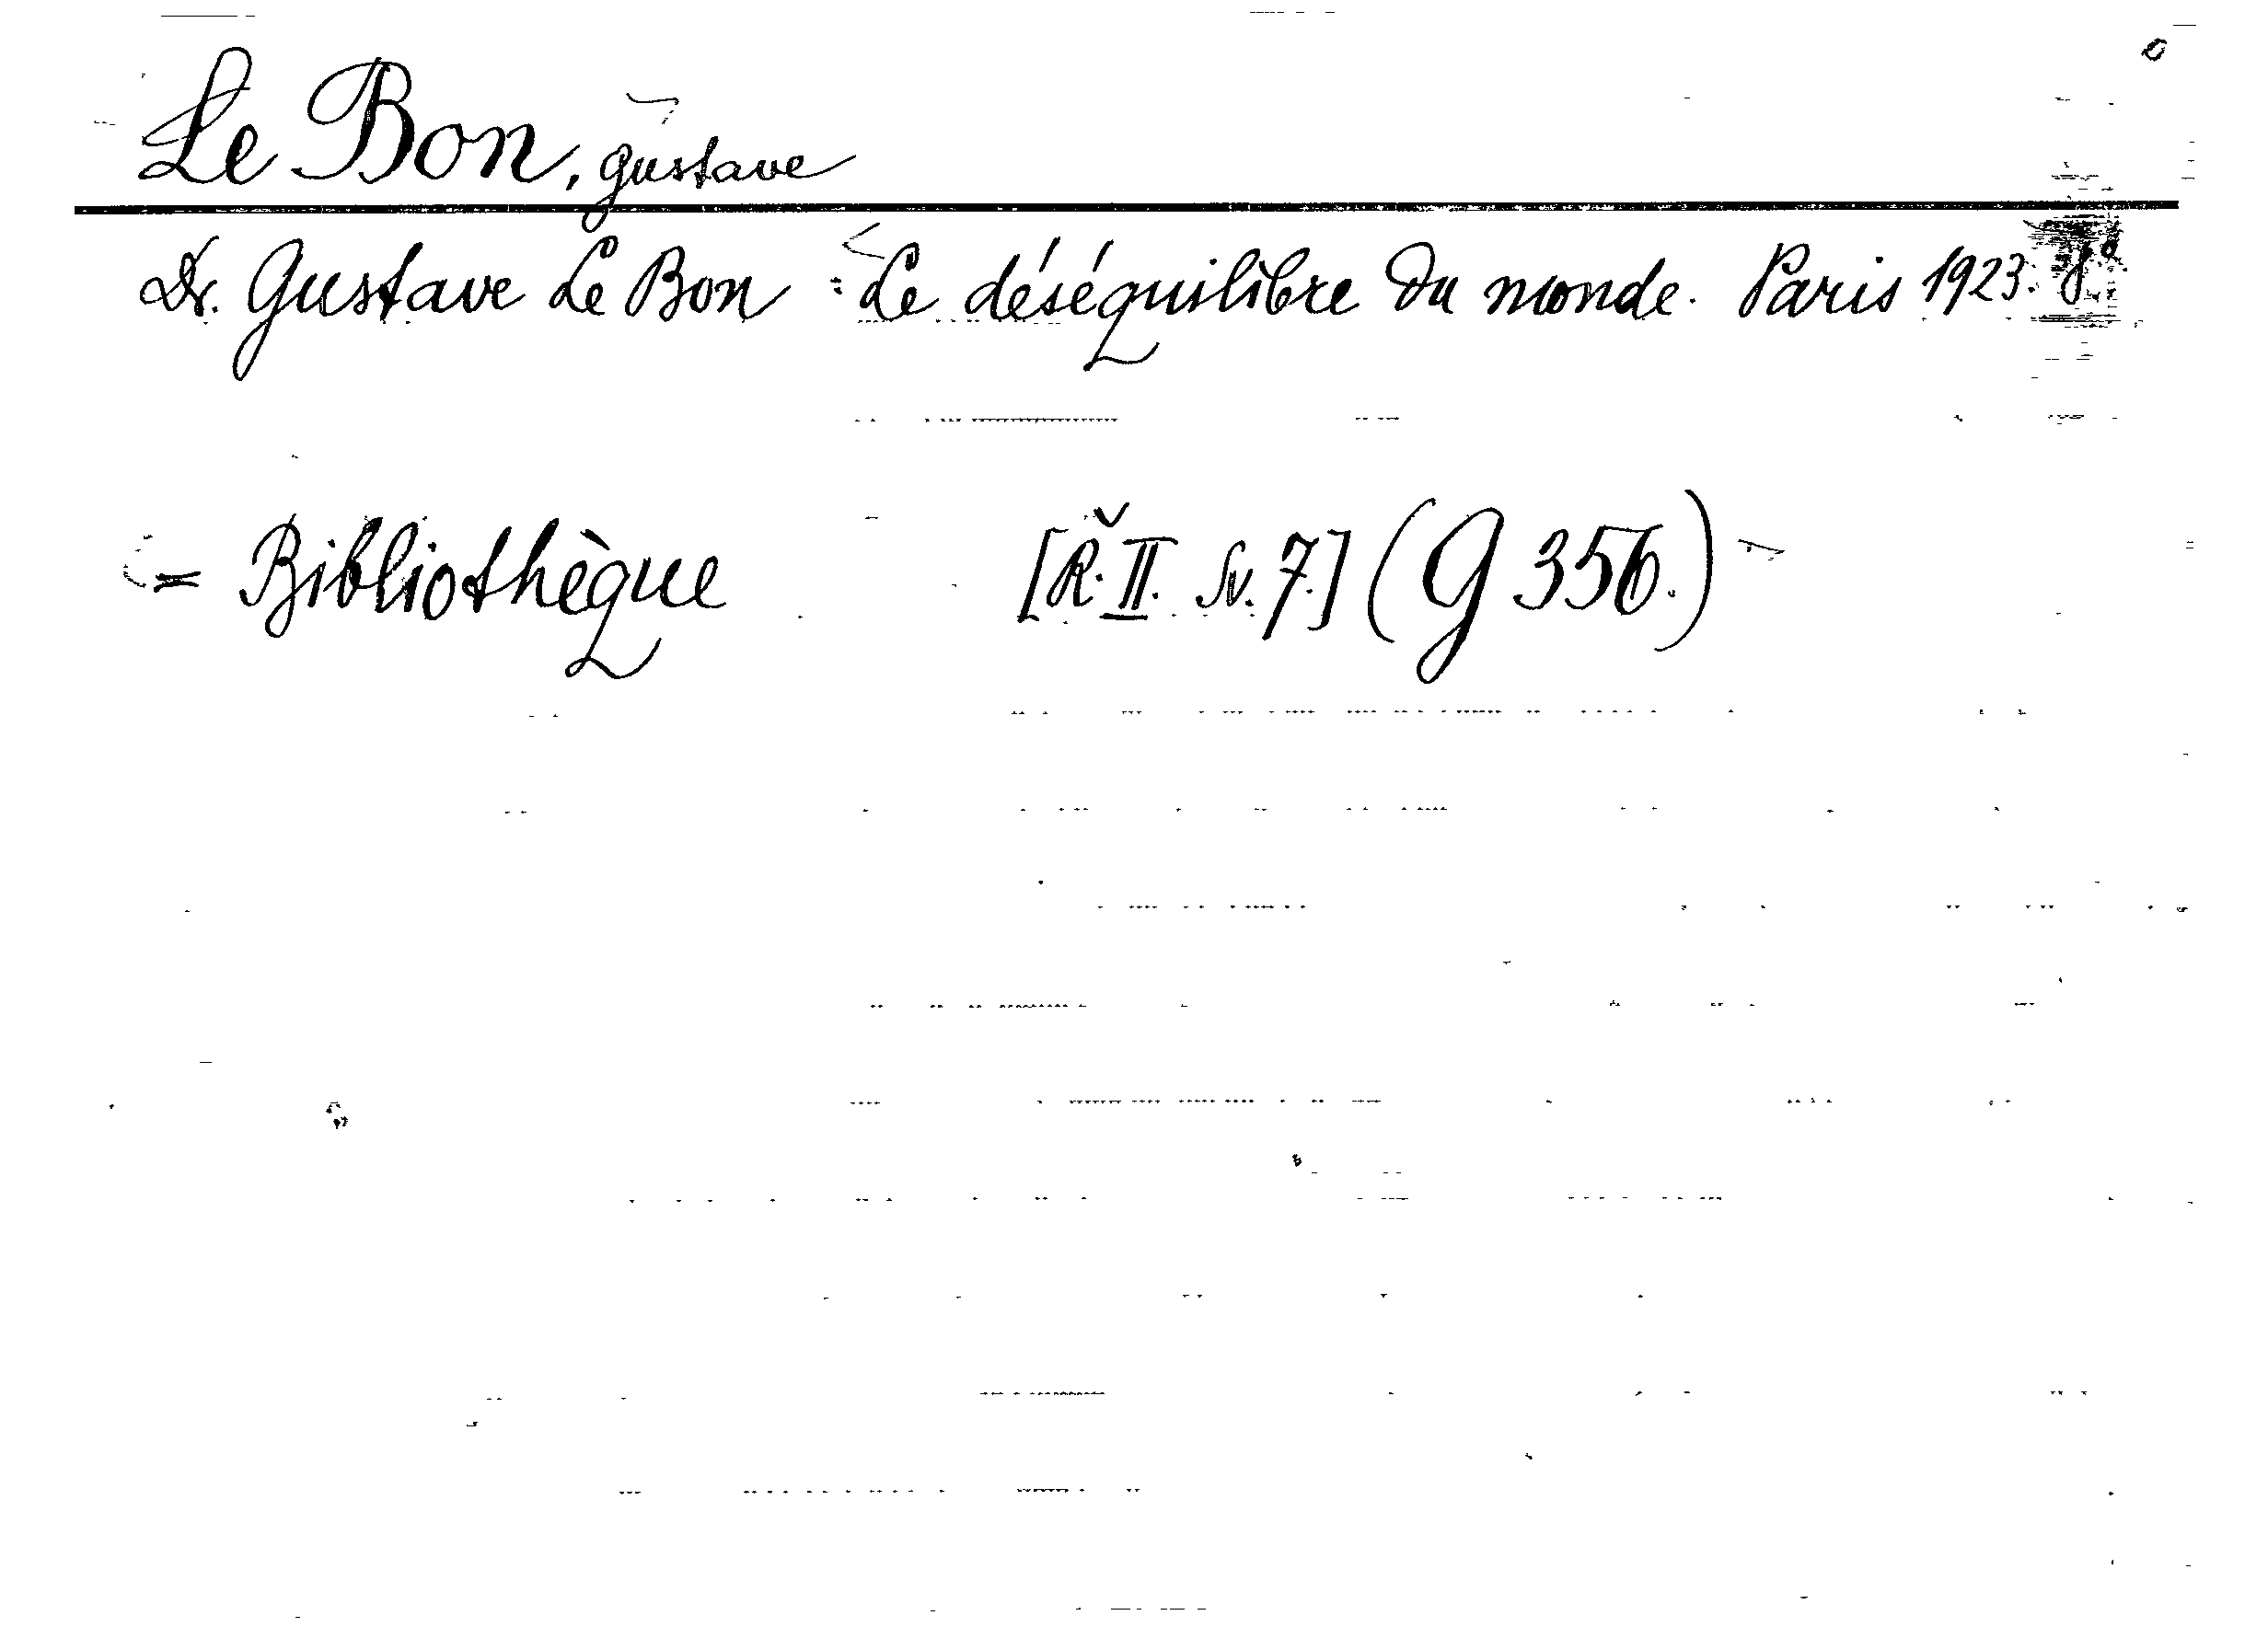 Le Bon, Gustave
Dr. Gustave Le Bon : Le déséquilibre du monde. Paris 1923. 8°
= Bibliothèque [Ř. II. Sv. 7.] (G 356.)